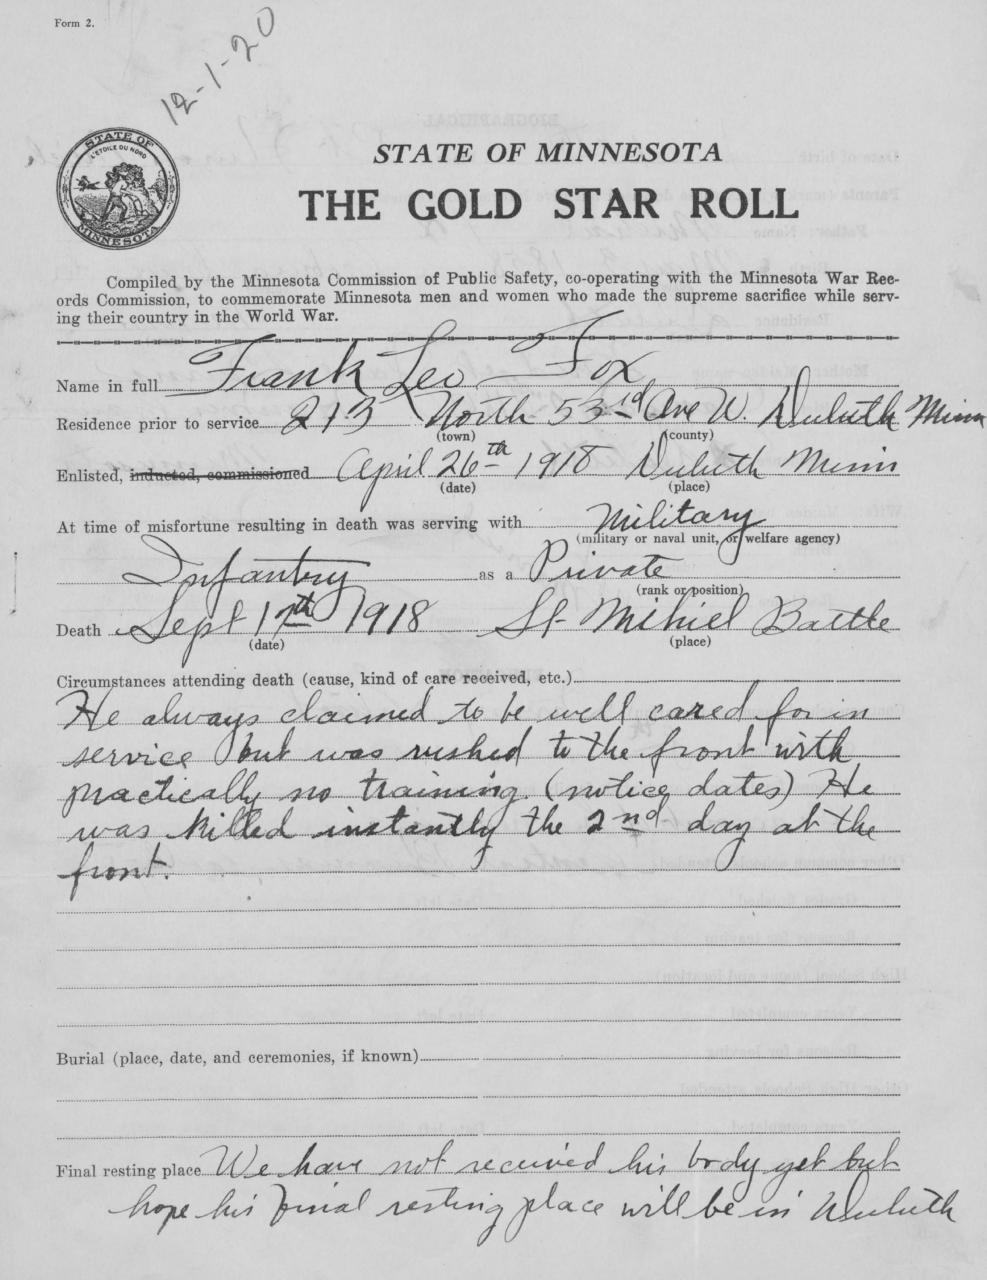 Form 2.
12-1-20
STATE OF
L'ETOILE DU NORD
MINNESOTA
STATE OF MINNESOTA
THE GOLD STAR ROLL
Compiled by the Minnesota Commission of Public Safety, co-operating with the Minnesota War Rec-
ords Commission, to commemorate Minnesota men and women who made the supreme sacrifice while serv-
ing their country in the World War.
Name in full Frank Leo Fox
Residence prior to service 213 North 53rd Ave W. Duluth Minn
(town) (county)
Enlisted, inducted, commissioned April 26th 1918 Duluth Minn
(date) (place)
At time of misfortune resulting in death was serving with Military
(military or naval unit, or welfare agency)
Infantry as a Private
(rank or position)
Death Sept 12th 1918 St Mihiel Battle
(date) (place)
Circumstances attending death (cause, kind of care received, etc.)
He always claimed to be well cared for in
service but was rushed to the front with
practically no training. (notice dates) He
was killed instantly the 2nd day at the
front.
Burial (place, date, and ceremonies, if known)
Final resting place We have not received his body yet but
hope his final resting place will be in Duluth